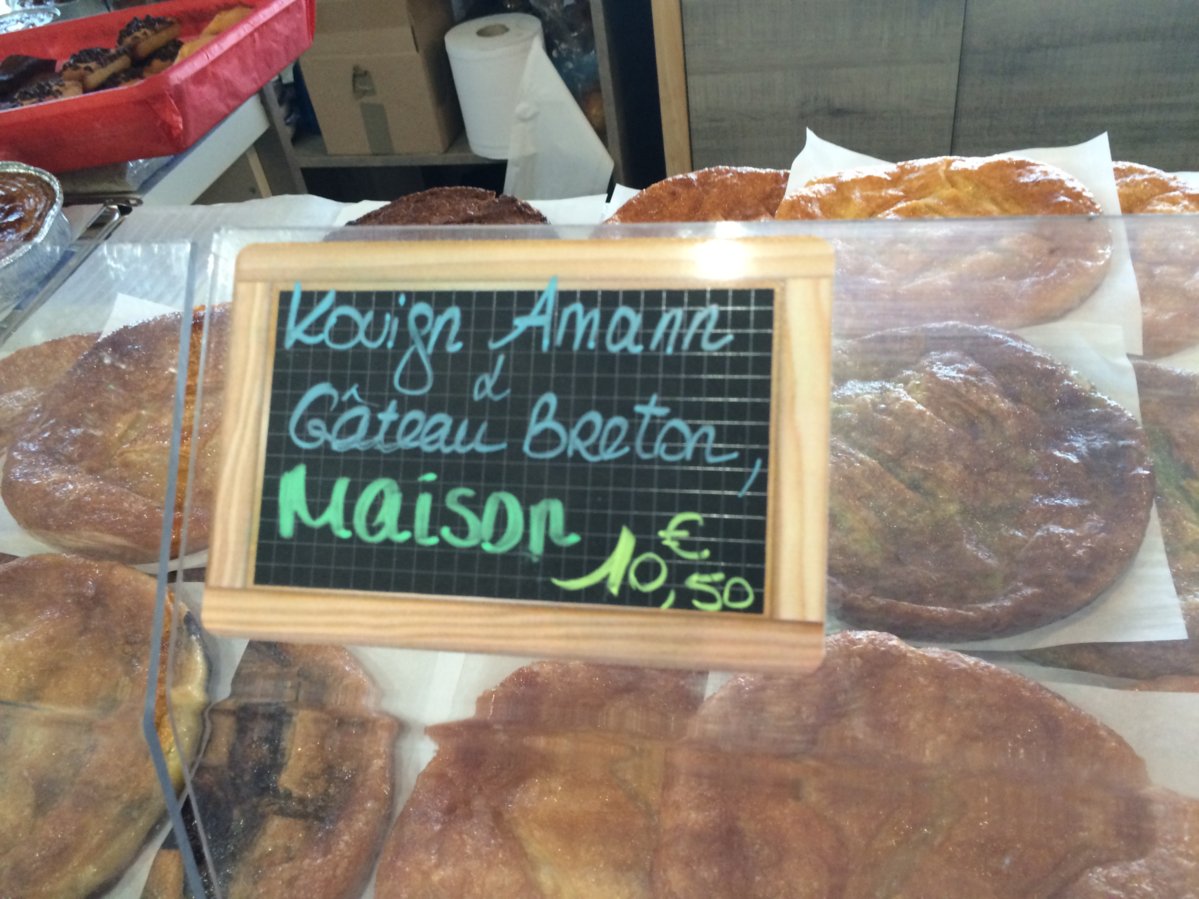 Kouign Amann
&
Gâteau Breton,
Maison
10,50€